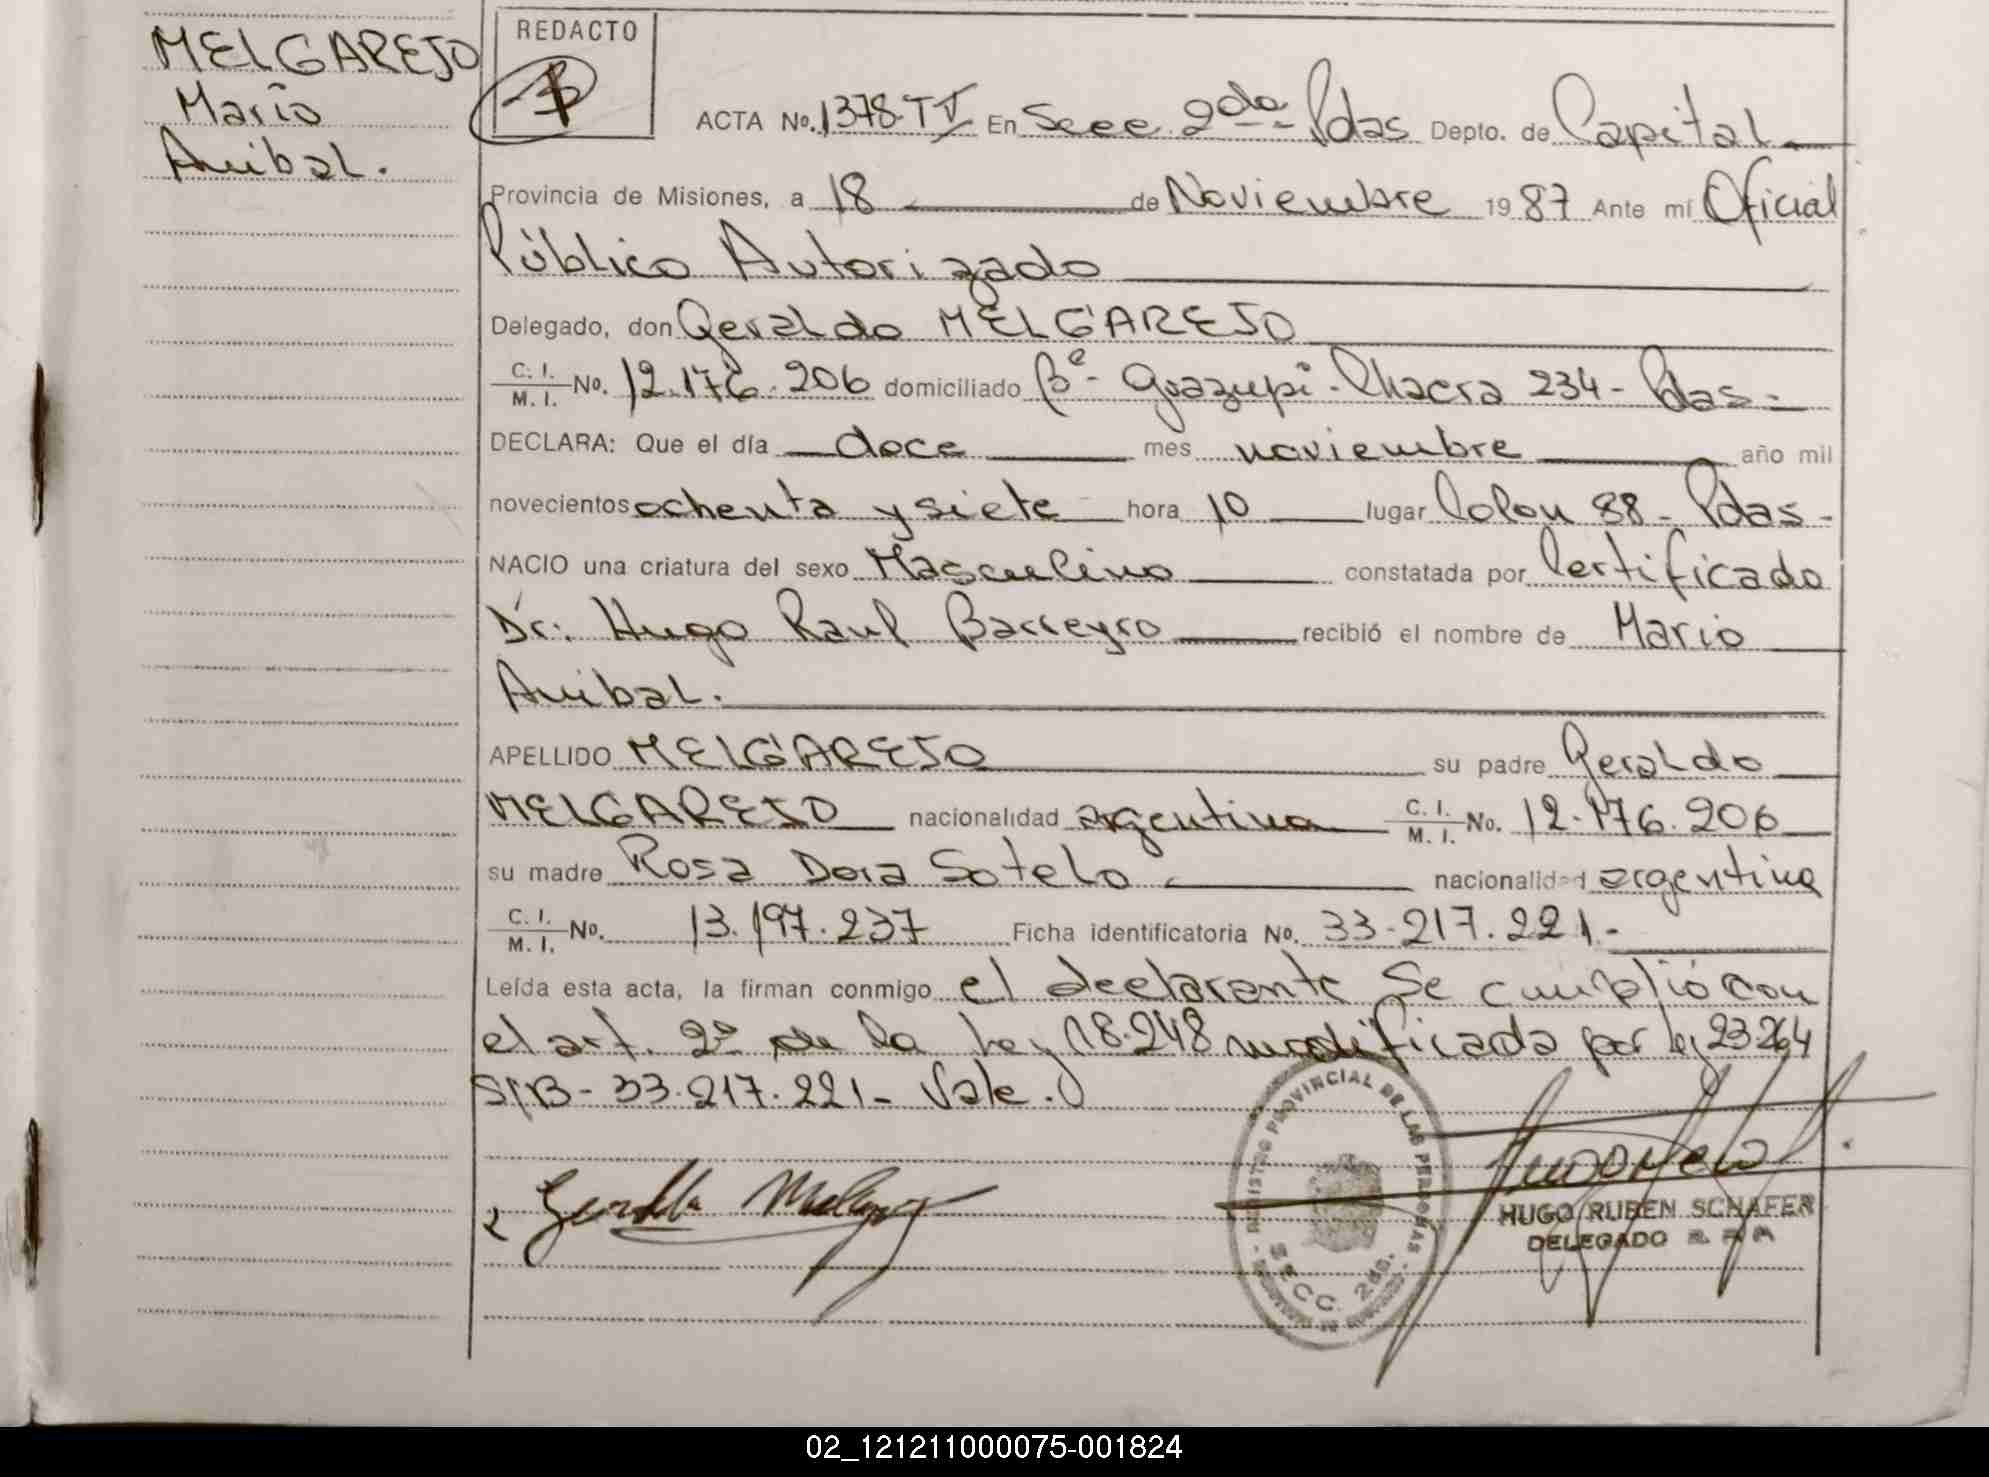 MELGAREJO
Mario
Anibal.
REDACTO
ACTA No. 1378-TV En Secc 2da Pdas Depto. de Capital
Provincia de Misiones, a 18 de Noviembre 1987 Ante mí Oficial
Público Autorizado
Delegado, don Geraldo MELGAREJO
C. I.
M. I. No. 12.176.206 domiciliado Bº- Guazupi - Chacra 234 - Pdas -
DECLARA: Que el día doce mes noviembre año mil
novecientos ochenta y siete hora 10 lugar Colon 88 - Pdas -
NACIO una criatura del sexo Masculino constatada por Certificado
Dr. Hugo Raul Barreyro recibió el nombre de Mario
Anibal.
APELLIDO MELGAREJO su padre Geraldo
MELGAREJO nacionalidad argentina C. I.
M. I. No. 12.176.206
su madre Rosa Dora Sotelo nacionalidad argentina
C. I.
M. I. No. 13.197.237 Ficha identificatoria No. 33-217.221.-
Leída esta acta, la firman conmigo el declarante Se cumplió con
el art. 2º de la Ley 18.248 modificada por ley 23.264
S/B - 33.217.221 - Vale.
REGISTRO PROVINCIAL DE LAS PERSONAS
SECC. 2da.
HUGO RUBEN SCHAFER
DELEGADO
02_121211000075-001824